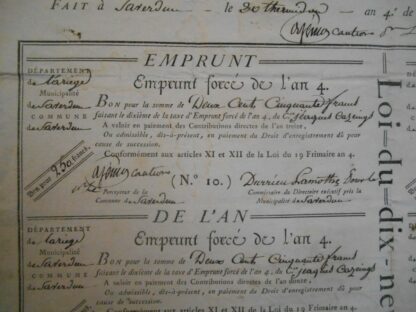 FAIT à Saverdun — le 30 thermidor — an 4.e d
EMPRUNT
DÉPARTEMENT
de Lariege
Municipalité
de Saverdun
COMMUNE
de Saverdun
Bon pour 250 francs.
Emprunt forcé de l'an 4.
BON pour la somme de Deux Cent Cinquante francs
faisant le dixième de la taxe d'Emprunt forcé de l'an 4, de C.en
A valoir en paiement des Contributions directes de l'an treize,
Ou admissible, dès-à-présent, en paiement de Droit d'enregistrement dû pour
cause de succession.
Conformément aux articles XI et XII de la Loi du 19 Frimaire an 4.
(N.º 10.)
Percepteur de la
Commune de Saverdun
Commissaire du Directoire exécutif près la
Municipalité de Saverdun
DE L'AN
DÉPARTEMENT
de Lariege
Municipalité
de Saverdun
COMMUNE
de Saverdun
Emprunt forcé de l'an 4.
BON pour la somme de Deux Cent Cinquante francs
faisant le dixième de la taxe d'Emprunt forcé de l'an 4, de C.en
A valoir en paiement des Contributions directes de l'an
Ou admissible, dès-à-présent, en paiement de Droit d'enregistrement dû pour
cause de succession.
Loi-du-dix-ne